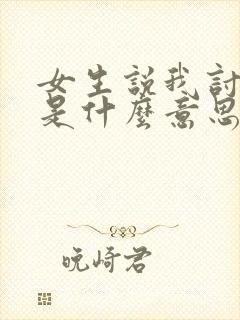 女生說我討
是什麼意思
晚崎君